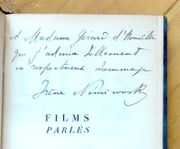 A Madame Gérard d'Houville
que j'admire tellement
en respectueux hommage
Irène Némirovsky
FILMS
PARLÉS